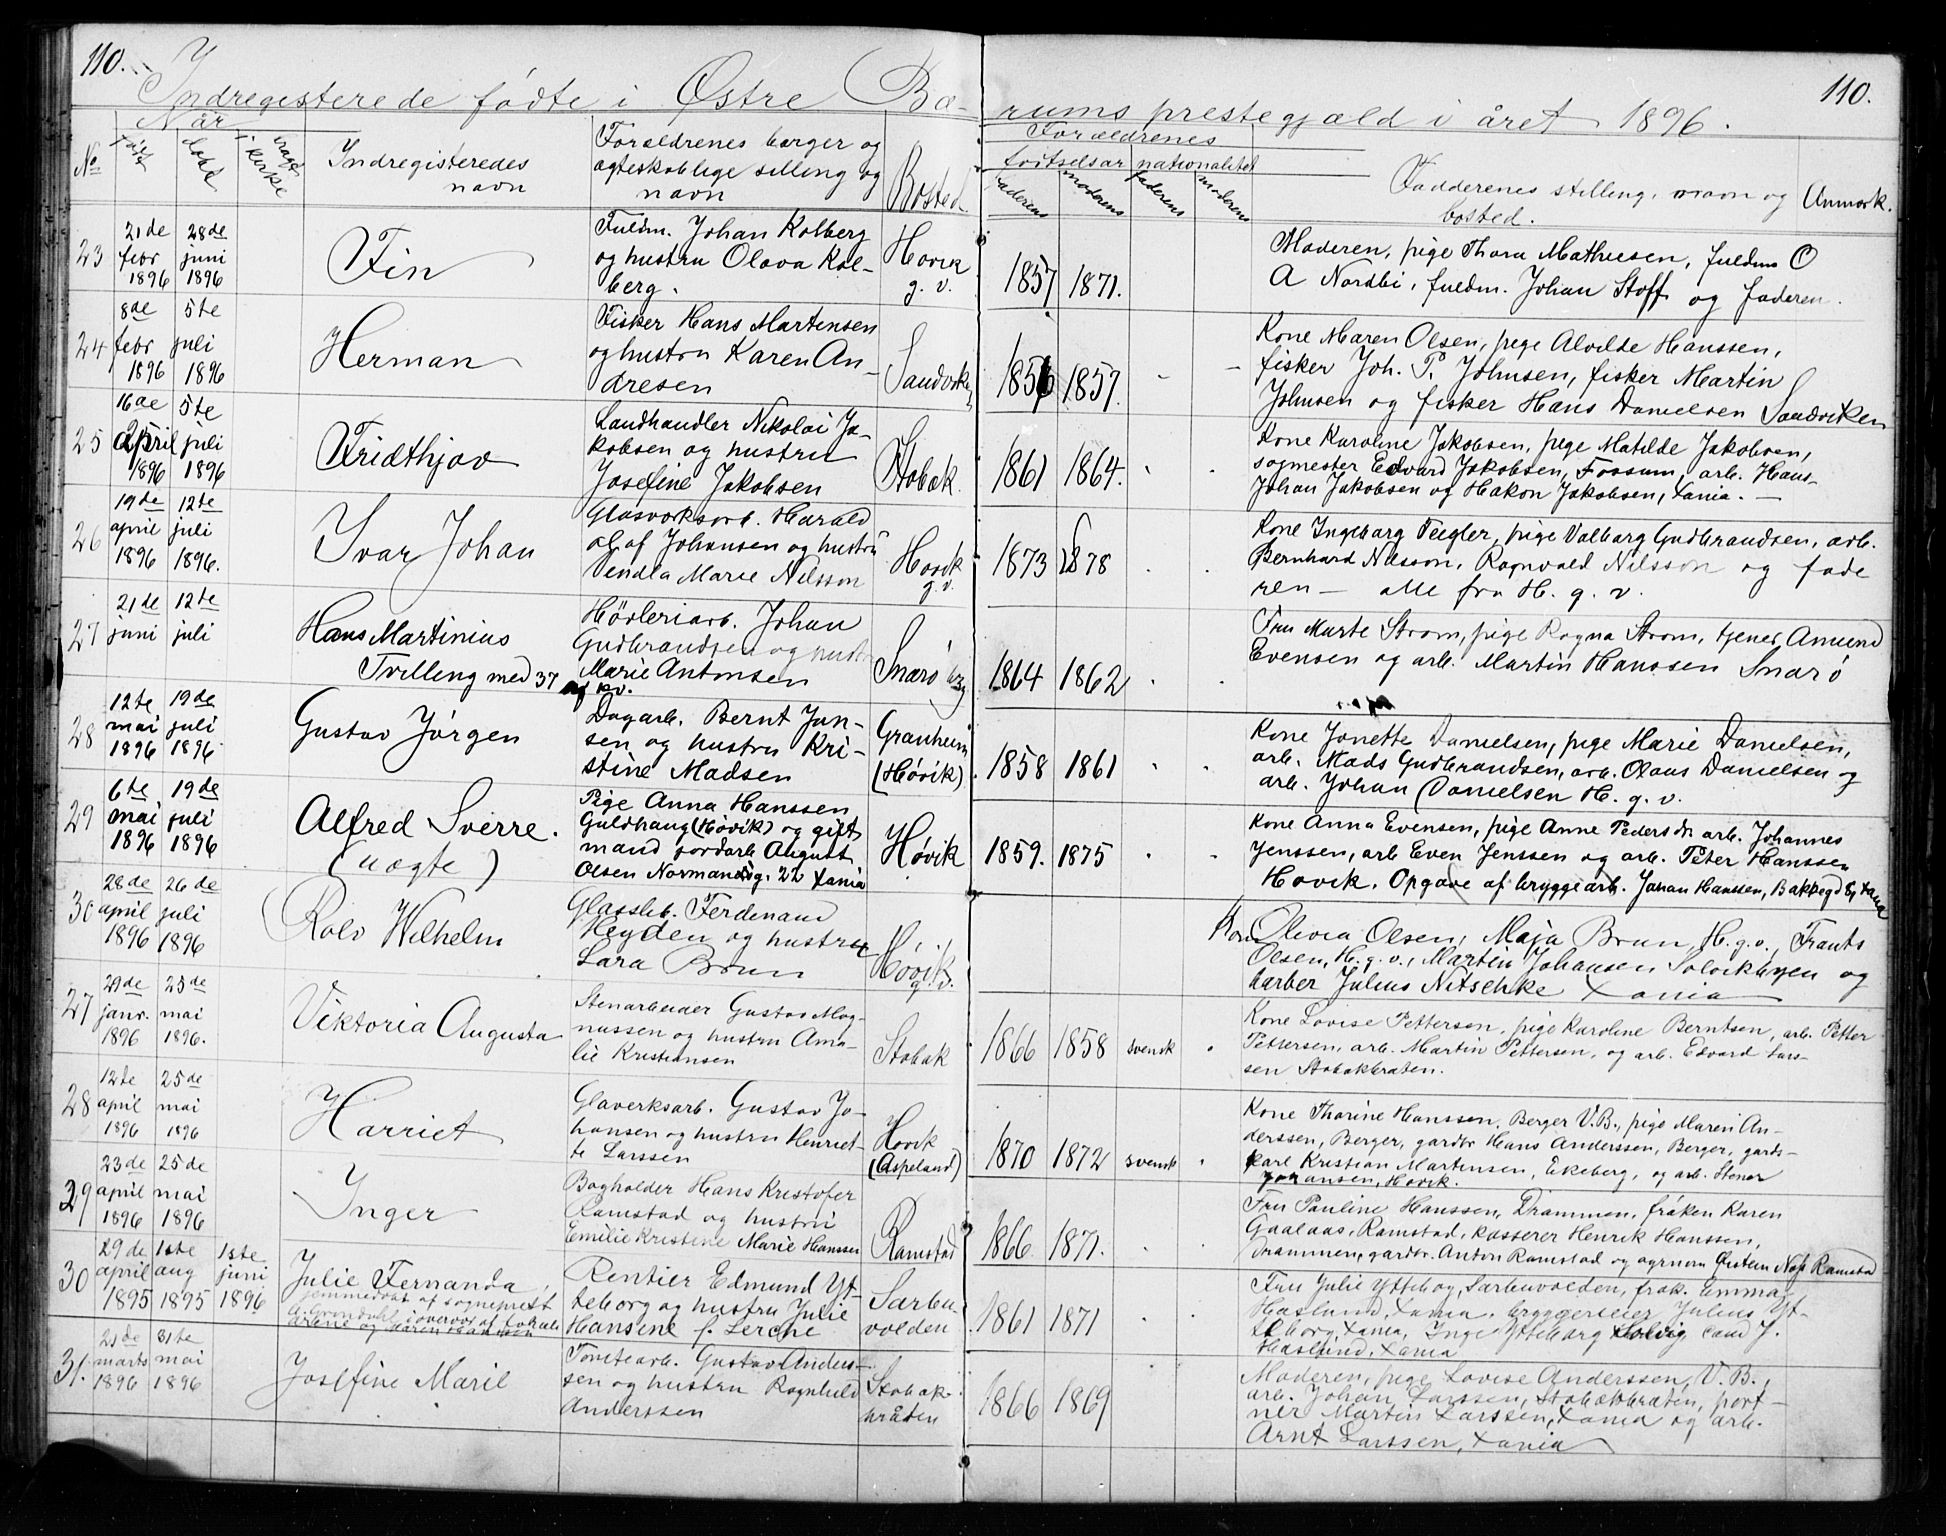 110.
110.
Indregisterede fødte i Østre Bæ-
rums prestegjæld i året 1896.
Når
Forældrenes
No
født
døbt
i kirke
Indregisteredes
navn
Forældrenes borger og
ægteskablige stilling og
navn
Bosted
fødselsår nationalitet
faderens moderens faderens moderens
Fadderenes stilling, navn og
bosted.
Anmærk.
23
21de 28de
febr juni
1896 1896
Fin
Fuldm. Johan Kolberg
og hustru Olava Kol-
berg.
Høvik
g. v.
1857 1871.
Moderen, pige Thora Mathiesen, fuldm O
A Nordbi, fuldm. Johan Stoff og faderen.
24
8de 5te
febr juli
1896 1896
Herman
Fisker Hans Martensen
og hustru Karen An-
dresen
Sandvik
1856 1857.
Kone Maren Olsen, pige Alvilde Hanssen,
fisker Joh. P. Johnsen, fisker Martin
Johnsen og fisker Hans Danielsen Sandviken
25
16de 5te
april juli
1896 1896
Fridthjov
Landhandler Nikolai Ja-
kobsen og hustru
Josefine Jakobsen
Stabæk.
1861 1864.
Kone Karoline Jakobsen, pige Matilde Jakobsen,
sagmester Edvard Jakobsen, Fossum, arb. Hans
Johan Jakobsen og Hakon Jakobsen, Xania.
26
19de 12te
april juli
1896 1896.
Ivar Johan
Glasværksarb. Harald
Olaf Johansen og hustru
Vendla Marie Nilsson
Høvik
g. v.
1873 1878
Kone Ingeborg Teigler, pige Valborg Gudbrandsen, arb.
Bernhard Nilsson, Ragnvald Nilsson og fade
ren — alle fra H. g. v.
27
21de 12te
juni juli
Hans Martinius
Tvilling med 37
af kv.
Høvleriarb. Johan
Gudbrandsen og hustr
Marie Antonsen
Snarø
1864 1862
Fru Marte Strøm, pige Ragna Strøm, tjener Amund
Evensen og arb. Martin Hanssen Snarø
28
12te 19de
mai juli
1896 1896
Gustav Jørgen
Dagarb. Bernt Jan-
sen og hustru Kri-
stine Madsen
Granheim
(Høvik)
1858 1861
Kone Jonette Danielsen, pige Marie Danielsen,
arb. Mads Gudbrandsen, arb. Olaus Danielsen og
arb. Johan Danielsen H. g. v.
29
6te 19de
mai juli
1896 1896
Alfred Sverre.
(uægte)
Pige Anna Hanssen
Guldhaug (Høvik) og gift
mand jordarb August
Olsen Normannsg. 22 Xania
Høvik
1859. 1875
Kone Anna Evensen, pige Anne Pedersdr arb. Johannes
Jenssen, arb Even Jenssen og arb. Peter Hanssen
Høvik. Opgave af bryggearb. Johan Hanssen, Bakkegd 8, Xania
30
28de 26de
april juli
1896 1896
Rolv Wilhelm
Glassleb. Ferdenand
Heyden og hustru
Lara Brun
Høvik
g. v.
Kone Olivia Olsen, Maja Brun, H. g. v., Frants
Olsen, H. g. v., Martin Johansen Solvikhøgen og
barber Julius Nitschke Xania
27
29de 25de
janr. mai
1896 1896.
Viktoria Augusta
Stenarbeider Gustav Mag-
nussen og hustru Ama-
lie Kristiansen
Stabæk
1866 1858 svensk
Kone Lovise Pettersen, pige Karoline Berntsen, arb. Petter
Pettersen, arb. Martin Pettersen, og arb. Edvard Lars-
sen Stabækbraten.
28
12te 25de
april mai
1896 1896
Harriet
Glaverksarb. Gustav Jo-
hansen og hustru Henriet-
te Larssen
Høvik
(Aspelund)
1870 1872 svensk
Kone Thorine Hanssen, Berger V.B., pige Maren An-
derssen, Berger, gardbr Hans Anderssen, Berger, gards-
karl Kristian Martensen, Ekeberg, og arb. Stener
Johansen, Høvik.
29
23de 25de
april mai
1896 1896
Inger
Bogholder Hans Kristofer
Ramstad og hustru
Emilie Kristine Marie Hanssen
Ramstad
1866. 1871.
Fru Pauline Hanssen, Drammen, frøken Karen
Gaalaas, Ramstad, kasserer Henrik Hanssen,
Drammen, gardbr. Anton Ramstad og agronom Østein Næss Ramstad
30
29de 1ste 1ste
april aug juni
1895 1895 1896
Julie Fernanda,
hjemmedøbt af sogneprest
A. Grøndahl i overvær af
Rentier Edmund Yt-
teborg og hustru Julie
Hansene f. Lerche
Sarbu-
volden
1861 1871
Fru Julie Ytteborg, Sarbuvolden, frøk. Emma
Haslund, Xania, bryggerieier Julius Yt-
teborg, Xania, Inge Ytteborg Solvig cand J.
Haslund, Xania
31.
21de 31te
marts mai
1896 1896
Josefine Marie
Tomtearb. Gustav Anders-
sen og hustru Ragnhild
Anderssen
Stabæk-
bråten
1866 1869
Moderen, pige Lovise Anderssen, V. B.,
arb. Johan Larssen, Stabækbraten, port-
ner Martin Larssen, Xania og arb.
Arnt Larssen, Xania